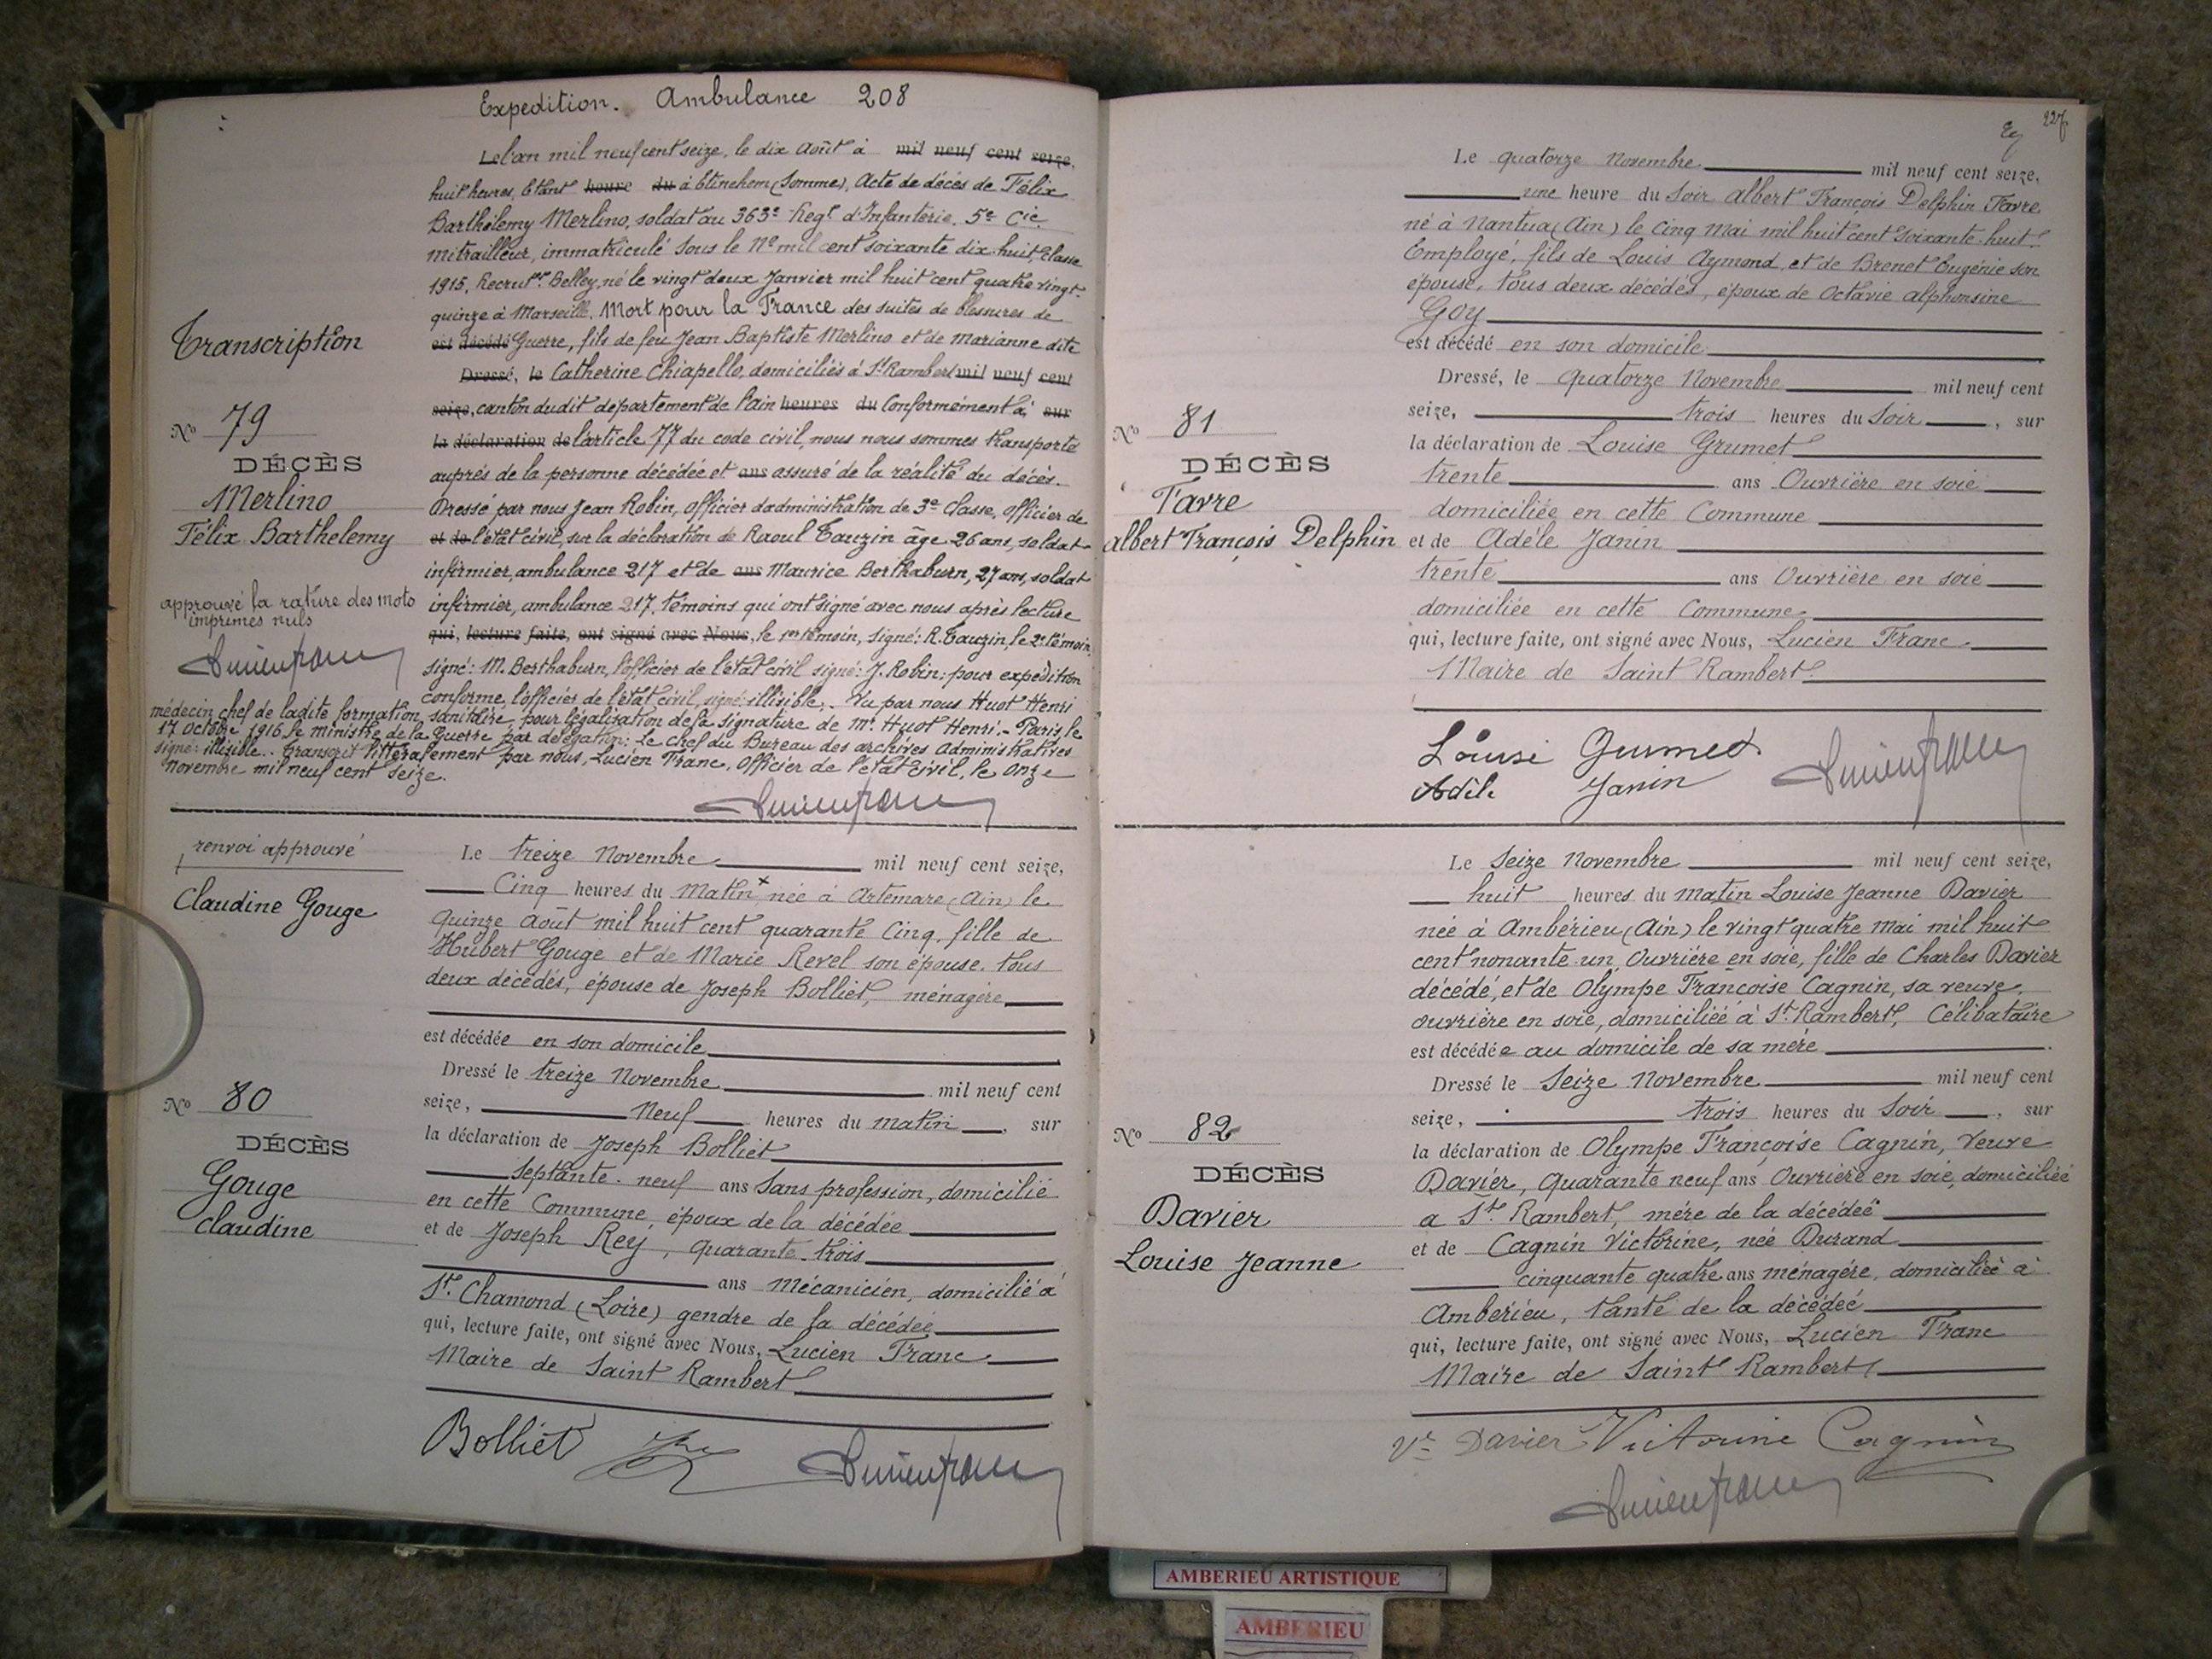 Expedition. Ambulance 208
Le l'an mil neuf cent seize, le dix Août à mil neuf cent seize,
huit heures, Etant heure du à Etinehem (Somme), Acte de décès de Félix
Barthélemy Merlino, soldat au 363e Regt d'Infanterie. 5e Cie
mitrailleur, immatriculé sous le No mil cent soixante dix-huit, Classe
1915, Recrutt Belley, né le vingt deux Janvier mil huit cent quatre vingt-
quinze à Marseille. Mort pour la France des suites de blessures de
est décédé Guerre, fils de feu Jean Baptiste Merlino et de Marianne dite
Dressé, le Catherine Chiapello, domiciliés à St Rambert mil neuf cent
seize, canton dudit département de l'ain heures du Conformément à sur
la déclaration de l'article 77 du code civil, nous nous sommes transporté
auprès de la personne décédée et ans assuré de la réalité du décès.
Dressé par nous Jean Robin, officier d'administration de 3e Classe, officier de
et de l'état civil, sur la déclaration de Raoul Tauzin âge 26 ans, soldat
infirmier, ambulance 217 et de ans Maurice Berthaburn, 27 ans, soldat
infirmier, ambulance 217, témoins qui ont signé avec nous après lecture
qui, lecture faite, ont signé avec Nous, le 1er témoin, signé: R. Tauzin, le 2e témoin,
signé: M. Berthaburn, l'officier de l'état civil signé: J. Robin; pour expédition
conforme, l'officier de l'état civil, signé: illisible. Vu par nous Huot Henri
médecin chef de ladite formation sanitaire pour légalisation de la signature de Mr Huot Henri. - Paris, le
17 Octobre 1916 le ministre de la Guerre par délégation: Le chef du Bureau des archives administratives
signé: illisible. Transcrit littéralement par nous, Lucien Franc, Officier de l'état civil, le onze
novembre mil neuf cent seize.
Lucien Franc
Transcription
No 79
DÉCÈS
Merlino
Félix Barthelemy
approuvé la rature des mots
imprimés nuls
Lucien Franc
renvoi approuvé
Claudine Gouge
No 80
DÉCÈS
Gouge
Claudine
Le treize Novembre mil neuf cent seize,
Cinq heures du Matin x née à Artemare (Ain) le
quinze Août mil huit cent quarante Cinq, fille de
Hubert Gouge et de Marie Revel son épouse, tous
deux décédés, épouse de Joseph Bolliet, ménagère
est décédée en son domicile
Dressé le treize Novembre mil neuf cent
seize, Neuf heures du matin, sur
la déclaration de Joseph Bolliet
Septante-neuf ans Sans profession, domicilié
en cette Commune, époux de la décédée
et de Joseph Rey, quarante-trois
ans Mécanicien, domicilié à
St. Chamond (Loire) gendre de la décédée
qui, lecture faite, ont signé avec Nous, Lucien Franc
Maire de Saint Rambert
Bolliet
Lucien Franc
227
No 81
DÉCÈS
Favre
Albert François Delphin
Le quatorze Novembre mil neuf cent seize,
une heure du Soir Albert François Delphin Favre
né à Nantua (Ain) le Cinq Mai mil huit cent soixante-huit
Employé, fils de Louis Aymond, et de Brenet Eugénie son
épouse, tous deux décédés, époux de Octavie Alphonsine
Goy
est décédé en son domicile
Dressé, le quatorze Novembre mil neuf cent
seize, trois heures du Soir, sur
la déclaration de Louise Grumet
trente ans Ouvrière en soie
domiciliée en cette Commune
et de Adèle Janin
trente ans Ouvrière en soie
domiciliée en cette Commune
qui, lecture faite, ont signé avec Nous, Lucien Franc
Maire de Saint Rambert
Louise Grumet
Adèle Janin
Lucien Franc
No 82
DÉCÈS
Davier
Louise Jeanne
Le Seize Novembre mil neuf cent seize,
huit heures du matin Louise Jeanne Davier
née à Ambérieu (Ain) le vingt quatre Mai mil huit
cent nonante un, Ouvrière en soie, fille de Charles Davier
décédé, et de Olympe Françoise Cagnin, sa veuve,
ouvrière en soie, domiciliée à St. Rambert, Célibataire
est décédée au domicile de sa mère
Dressé le Seize Novembre mil neuf cent
seize, trois heures du Soir, sur
la déclaration de Olympe Françoise Cagnin, Veuve
Davier, quarante neuf ans Ouvrière en soie, domiciliée
a St. Rambert, mère de la décédée
et de Cagnin Victorine, née Durand
cinquante quatre ans ménagère, domiciliée à
Ambérieu, tante de la décédée
qui, lecture faite, ont signé avec Nous, Lucien Franc
Maire de Saint Rambert
Ve Davier Victorine Cagnin
Lucien Franc
AMBERIEU ARTISTIQUE
AMBERIEU